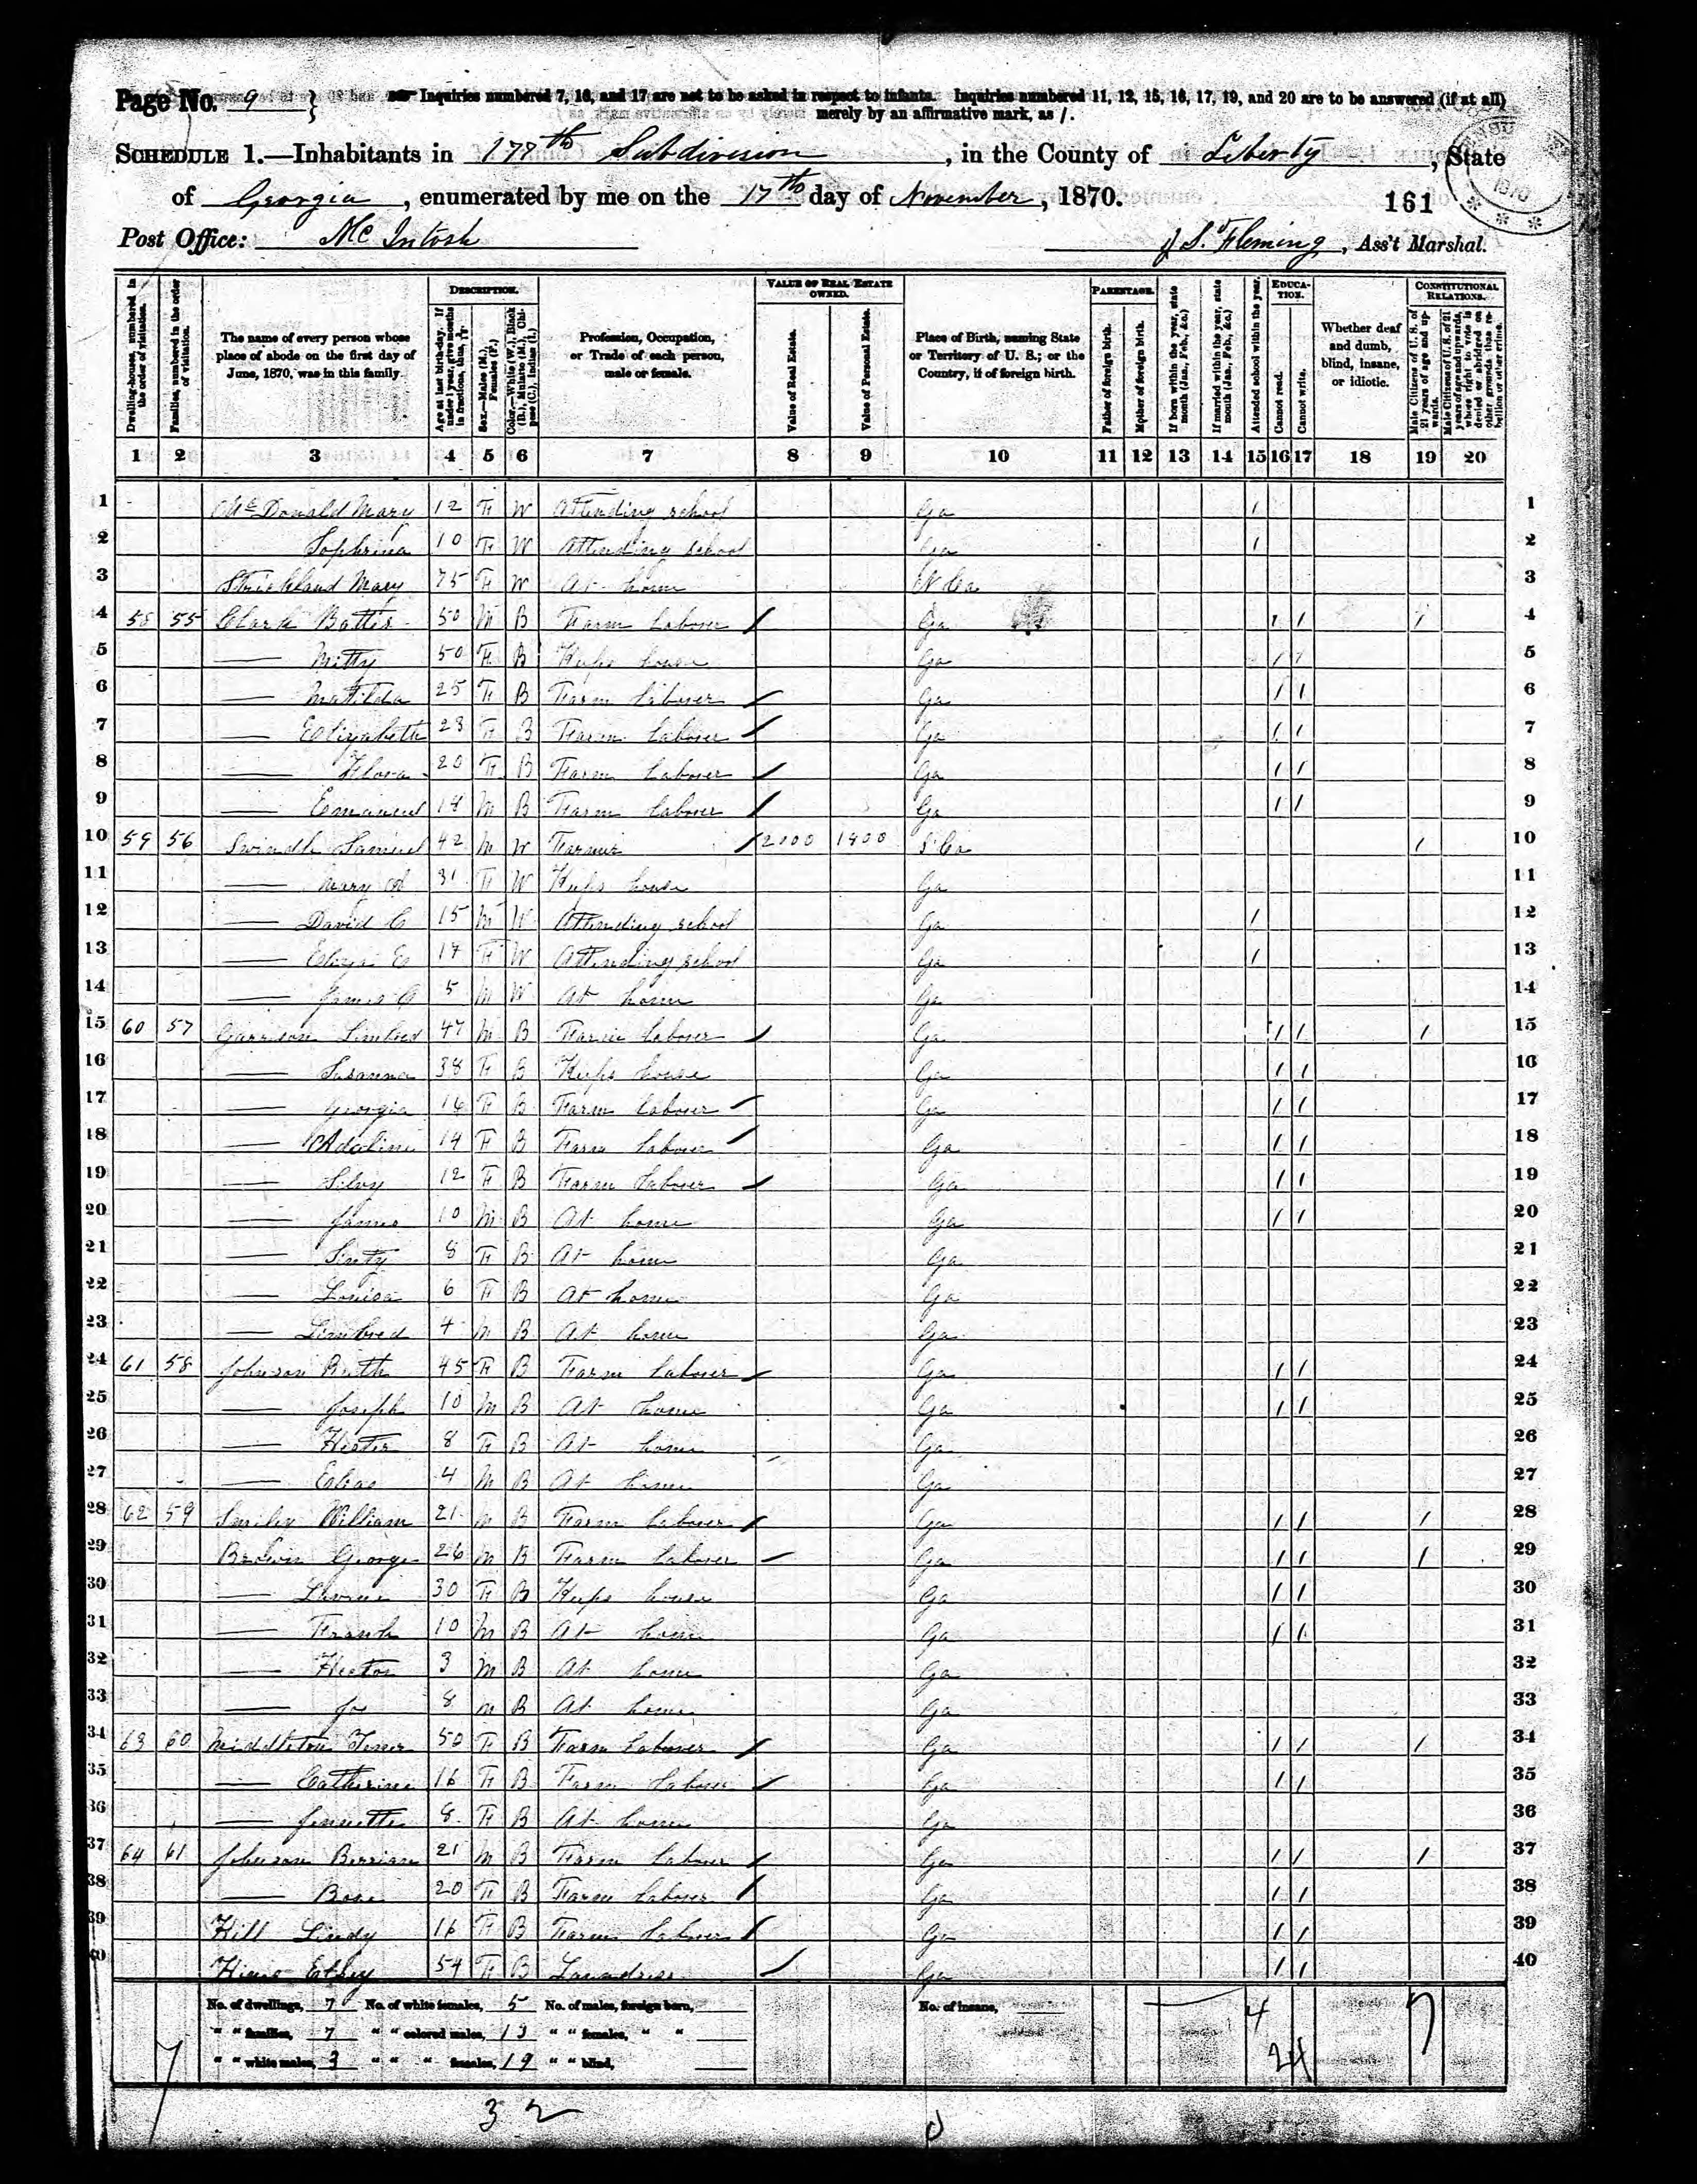 Page No. 9 } Inquiries numbered 7, 16, and 17 are not to be asked in respect to infants. Inquiries numbered 11, 12, 15, 16, 17, 19, and 20 are to be answered (if at all)
merely by an affirmative mark, as /.
SCHEDULE 1.—Inhabitants in 17th Subdivision, in the County of Liberty, State
of Georgia, enumerated by me on the 17th day of November, 1870.
161
Post Office: McIntosh
J S. Fleming, Ass't Marshal.
Dwelling-houses, numbered in the order of visitation.
Families, numbered in the order of visitation.
The name of every person whose place of abode on the first day of June, 1870, was in this family.
DESCRIPTION.
Age at last birth-day. If under 1 year, give months in fractions, thus, 3/12
Sex.—Males (M.), Females (F.)
Color.—White (W.), Black (B.), Mulatto (M.), Chinese (C.), Indian (I.)
Profession, Occupation, or Trade of each person, male or female.
VALUE OF REAL ESTATE OWNED.
Value of Real Estate.
Value of Personal Estate.
Place of Birth, naming State or Territory of U. S.; or the Country, if of foreign birth.
PARENTAGE.
Father of foreign birth.
Mother of foreign birth.
If born within the year, state month (Jan., Feb., &c.)
If married within the year, state month (Jan., Feb., &c.)
Attended school within the year.
EDUCATION.
Cannot read.
Cannot write.
Whether deaf and dumb, blind, insane, or idiotic.
CONSTITUTIONAL RELATIONS.
Male Citizens of U. S. of 21 years of age and upwards.
Male Citizens of U. S. of 21 years of age and upwards, whose right to vote is denied or abridged on other grounds than rebellion or other crime.
1 2 3 4 5 6 7 8 9 10 11 12 13 14 15 16 17 18 19 20
1 McDonald Mary 12 F W Attending school Ga / 1
2 Sophrina 10 F W Attending school Ga / 2
3 Strickland Mary 75 F W At home N Ca 3
4 58 55 Clark Battis 50 M B Farm Laborer Ga / / / 4
5 — Mitty 50 F B Keeps house Ga / / 5
6 — Matilda 25 F B Farm Laborer Ga / / 6
7 — Elizabeth 23 F B Farm Laborer Ga / / 7
8 — Flora 20 F B Farm Laborer Ga / / 8
9 — Emanuel 18 M B Farm Laborer Ga / / 9
10 59 56 Swindle Samuel 42 M W Farmer 2000 1400 S Ca / 10
11 — Mary A 31 F W Keeps house Ga 11
12 — David C 15 M W Attending school Ga / 12
13 — Eliza E 17 F W Attending school Ga / 13
14 — James A 5 M W At home Ga 14
15 60 57 Garrison Limbred 47 M B Farm Laborer Ga / / / 15
16 — Susanna 38 F B Keeps house Ga / / 16
17 — Georgia 16 F B Farm Laborer Ga / / 17
18 — Adaline 14 F B Farm Laborer Ga / / 18
19 — Silvy 12 F B Farm Laborer Ga / / 19
20 — James 10 M B At home Ga / / 20
21 — 8 F B At home Ga 21
22 — Louisa 6 F B At home Ga 22
23 — Limbred 4 M B At home Ga 23
24 61 58 Johnson Ruth 45 F B Farm Laborer Ga / / 24
25 — Joseph 10 M B At home Ga / / 25
26 — Hester 8 F B At home Ga 26
27 — Elias 4 M B At home Ga 27
28 62 59 Smiley William 21 M B Farm Laborer Ga / / / 28
29 Brown George 26 M B Farm Laborer Ga / / / 29
30 — 30 F B Keeps house Ga / / 30
31 — Frank 10 M B At home Ga / / 31
32 — Hector 3 M B At home Ga 32
33 — Jos 8 M B At home Ga 33
34 63 60 Middleton 50 F B Farm Laborer Ga / / / 34
35 — Catherine 16 F B Farm Laborer Ga / / 35
36 — Jennette 8 F B At home Ga 36
37 64 61 Johnson Berrian 21 M B Farm Laborer Ga / / / 37
38 — Rose 20 F B Farm Laborer Ga / / 38
39 Hill Lindy 16 F B Farm Laborer Ga / / 39
40 54 F B Laundress Ga / / 40
No. of dwellings, 7 No. of white females, 5 No. of males, foreign born, No. of insane, 4 7
" " families, 7 " " colored males, 13 " " females, " "
" " white males, 3 " " " females, 19 " " blind, 24
32